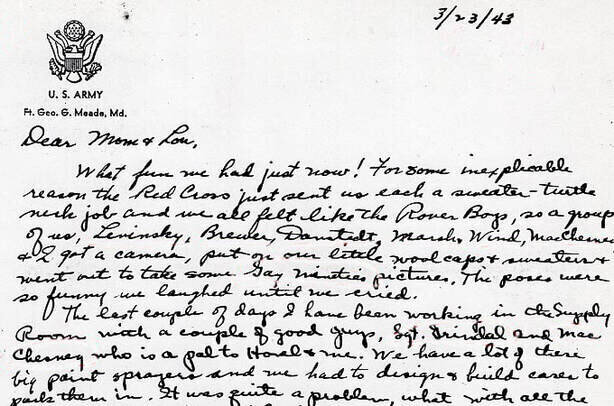 3/23/43
U. S. ARMY
Ft. Geo. G. Meade, Md.
Dear Mom & Lou,
What fun we had just now! For some inexplicable
reason the Red Cross just sent us each a sweater-turtle
neck job and we all felt like the Rover Boys, so a group
of us, Levinsky, Brewer, Danstedt, Marsh, Wind, MacChesney
& I got a camera, put on our little wool caps & sweaters &
went out to take some Gay Nineties pictures. The poses were
so funny we laughed until we cried.
The last couple of days I have been working in the Supply
Room with a couple of good guys, Sgt. and Mac
Chesney who is a pal to & me. We have a lot of these
big paint sprayers and we had to design & build cases to
pack them in. It was quite a problem, what with all the